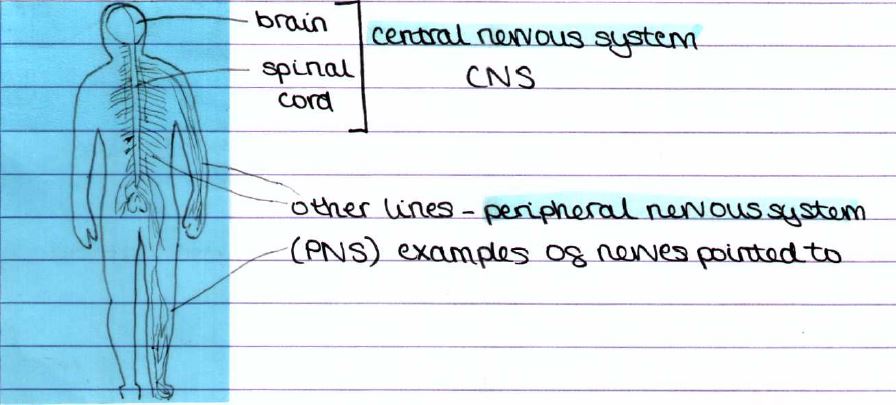 brain
spinal
cord
central nervous system
CNS
other lines - peripheral nervous system
(PNS) examples of nerves pointed to